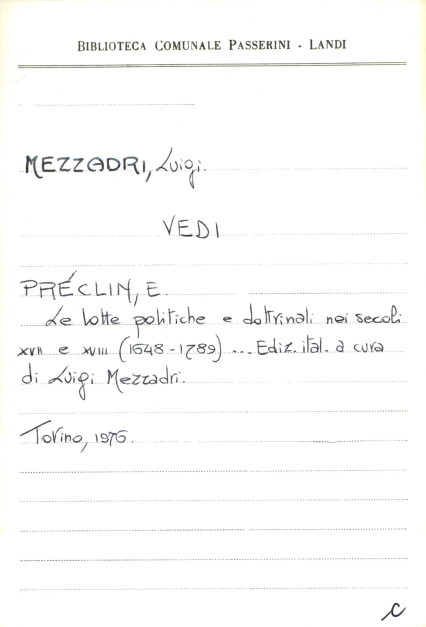 BIBLIOTECA COMUNALE PASSERINI - LANDI
MEZZADRI, Luigi.
VEDI
PRÉCLIN, E.
Le lotte politiche e dottrinali nei secoli
XVII e XVIII (1648-1789) ... Ediz. ital. a cura
di Luigi Mezzadri.
Torino, 1976.
C